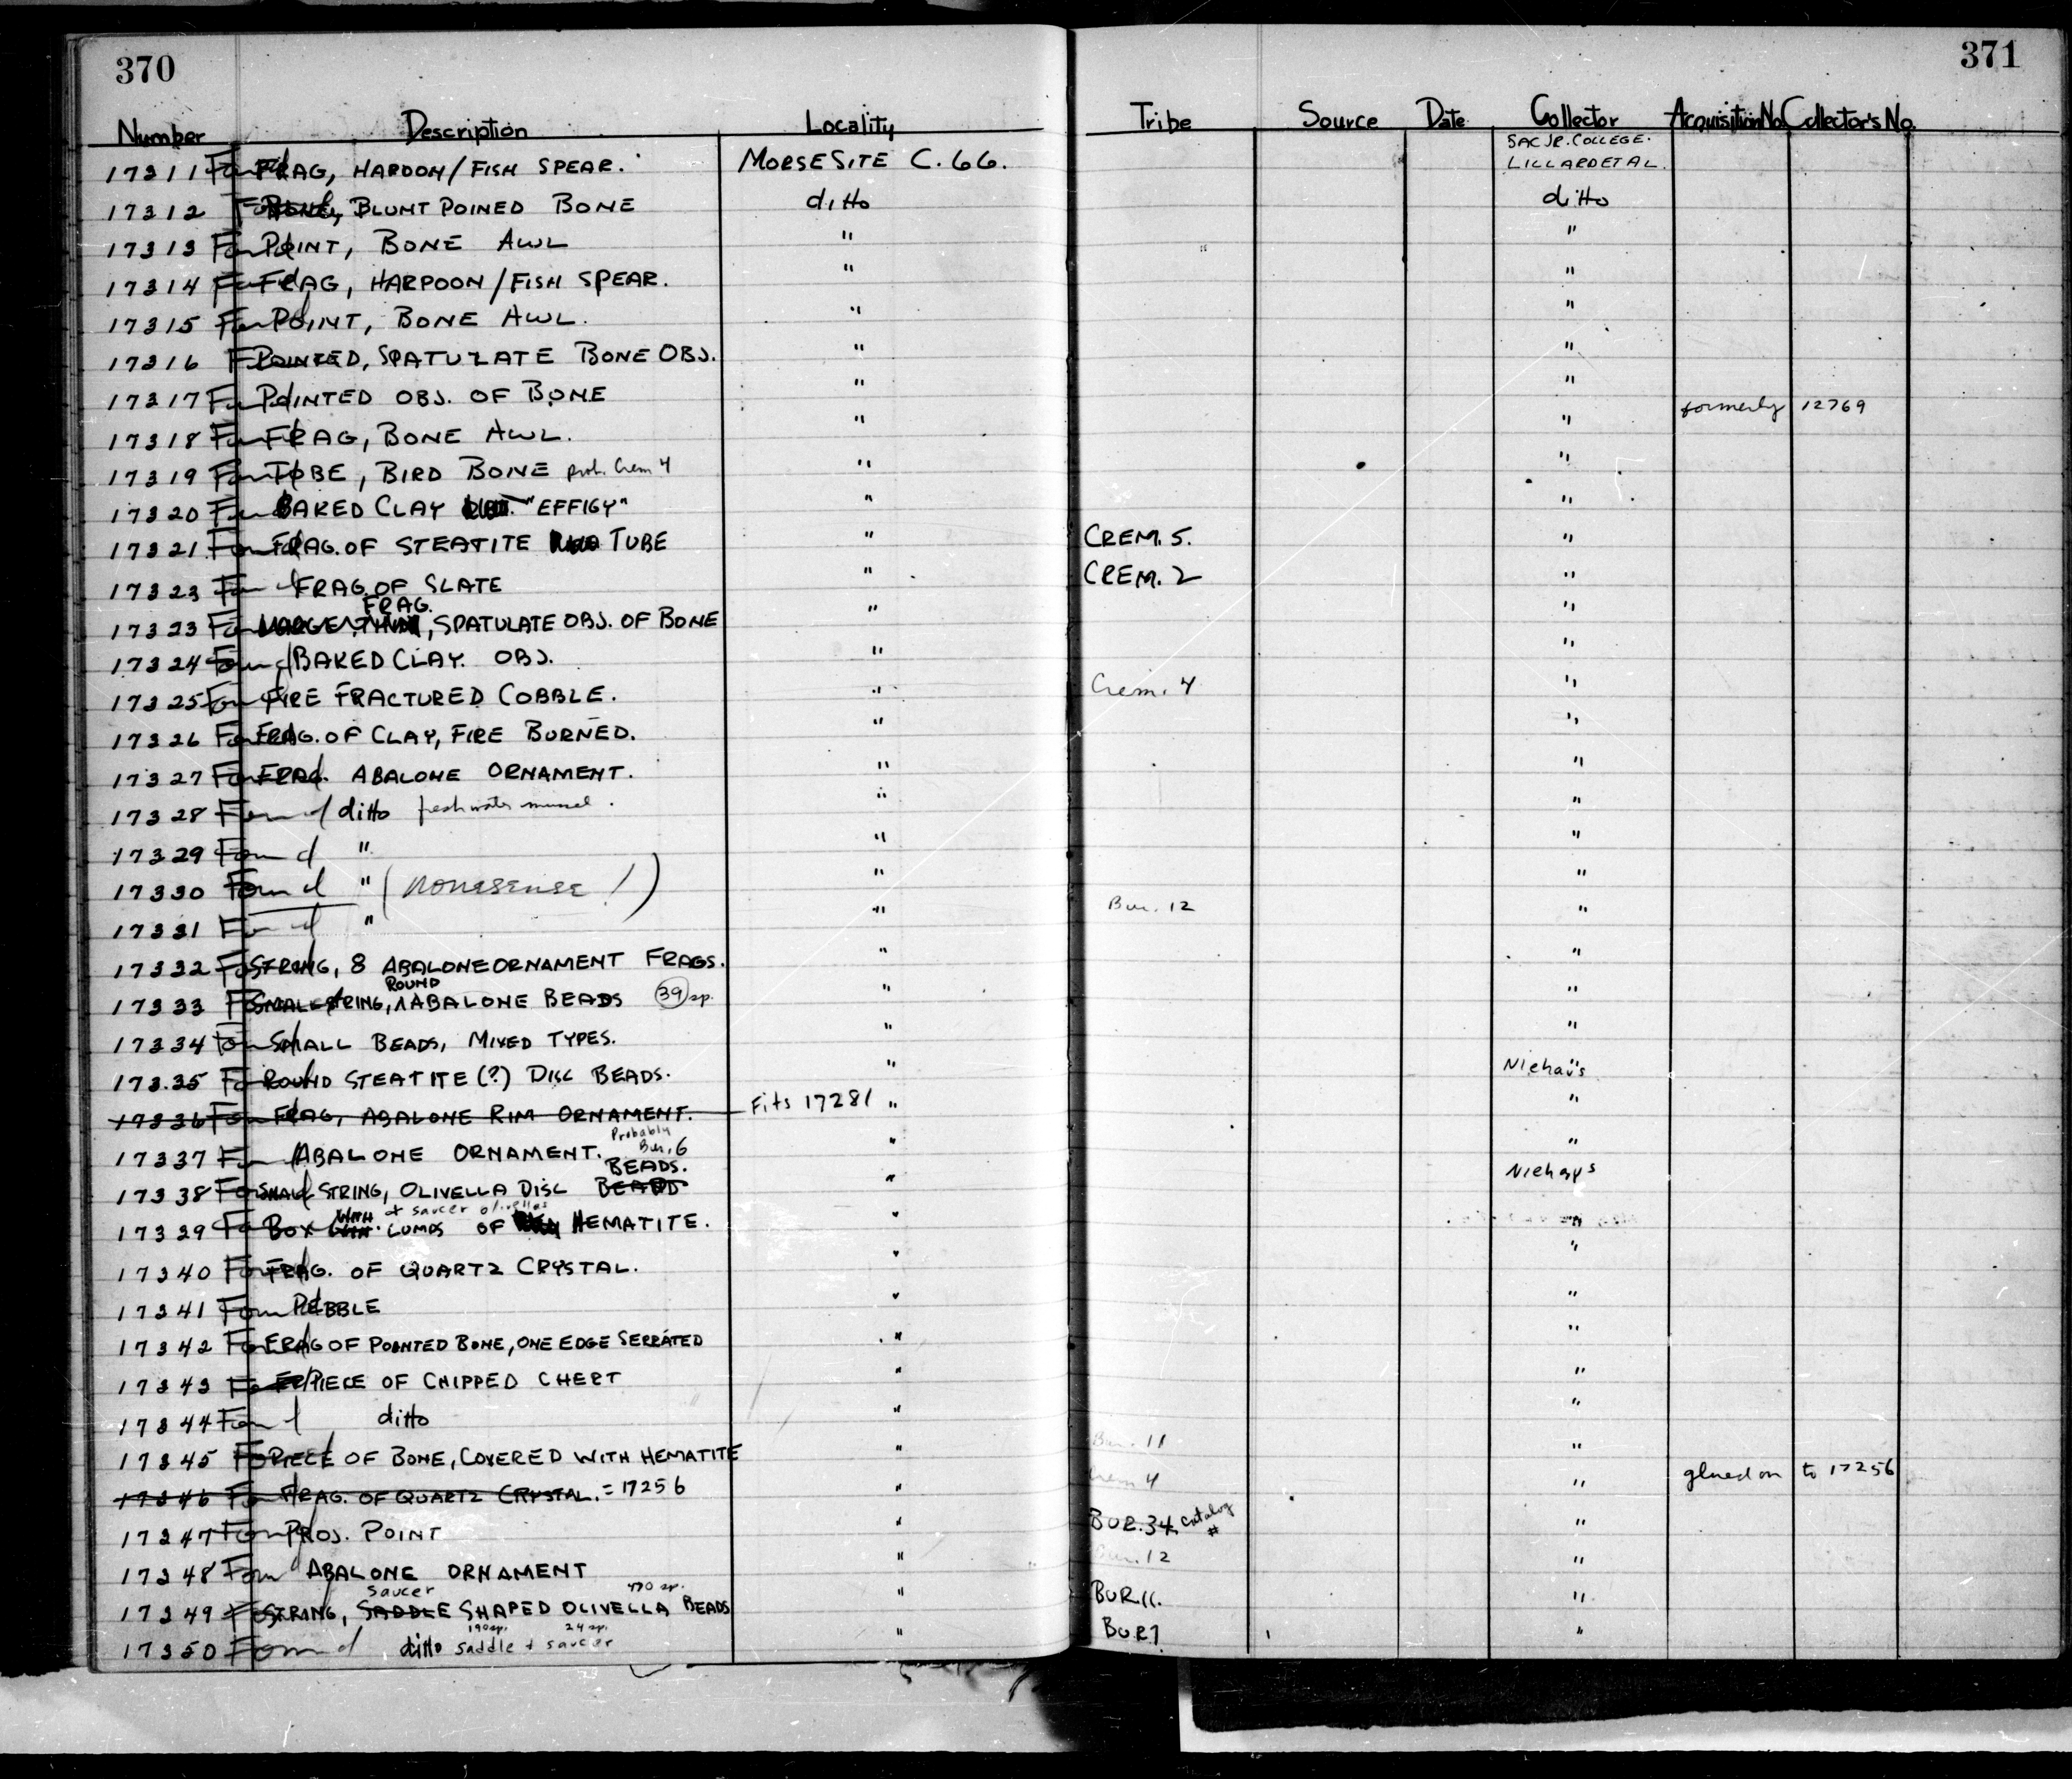 370
371
Number Description Locality Tribe Source Date Collector Acquisition No. Collector's No.
SAC JR. COLLEGE.
17311 Found FRAG, HARDON/FISH SPEAR. MORSE SITE C.66. LILLARD ET AL.
17312 Found BLUNT POINED BONE ditto ditto
17313 Found POINT, BONE AWL " " "
17314 Found FRAG, HARPOON/FISH SPEAR. " "
17315 Found POINT, BONE AWL. " "
17316 POINTED, SPATULATE BONE OBJ. " "
17317 Found POINTED OBJ. OF BONE " " formerly 12769
17318 Found FRAG, BONE AWL. " "
17319 Found TUBE, BIRD BONE prob. Crem 4 " "
17320 Found BAKED CLAY "EFFIGY" " "
17321 Found FRAG. OF STEATITE TUBE " CREM. 5. "
17323 Found FRAG. OF SLATE " CREM. 2 "
FRAG.
17323 Found LARGE, SPATULATE OBJ. OF BONE " "
17324 Found BAKED CLAY. OBJ. " "
17325 Found FIRE FRACTURED COBBLE. " Crem. 4 "
17326 Found FRAG. OF CLAY, FIRE BURNED. " "
17327 Found FRAG. ABALONE ORNAMENT. " "
17328 Found ditto freshwater mussel. " "
17329 Found " " "
17330 Found " (nonesense!) " "
17331 Found " " Bur. 12 "
17332 Found STRING, 8 ABALONE ORNAMENT FRAGS. " "
ROUND
17333 Found SMALL STRING, ABALONE BEADS 39 sp. " "
17334 Found SMALL BEADS, MIXED TYPES. " "
17335 Found ROUND STEATITE (?) DISC BEADS. " Niehaus
17336 Found FRAG, ABALONE RIM ORNAMENT. Fits 17281 " "
Probably
17337 Found ABALONE ORNAMENT. Bur. 6 " "
BEADS.
17338 Found SMALL STRING, OLIVELLA DISC BEADS " Niehaus
WITH + saucer olivellas
17339 Found BOX LUMPS OF HEMATITE. " "
17340 Found FRAG. OF QUARTZ CRYSTAL. " "
17341 Found PEBBLE " "
17342 Found FRAG OF POINTED BONE, ONE EDGE SERRATED " "
17343 Found PIECE OF CHIPPED CHERT " "
17344 Found ditto " "
17345 Found PIECE OF BONE, COVERED WITH HEMATITE " Bur. 11 "
17346 Found FRAG. OF QUARTZ CRYSTAL. = 17256 " Crem 4 " glued on to 17256
17347 Found PROJ. POINT " BUR. 34 catalog # "
17348 Found ABALONE ORNAMENT " Bur. 12 "
saucer sp.
17349 Found STRING, SADDLE SHAPED OLIVELLA BEADS " BUR 11. "
190 sp. 24 sp.
17350 Found ditto saddle + saucer " BUR 7 "